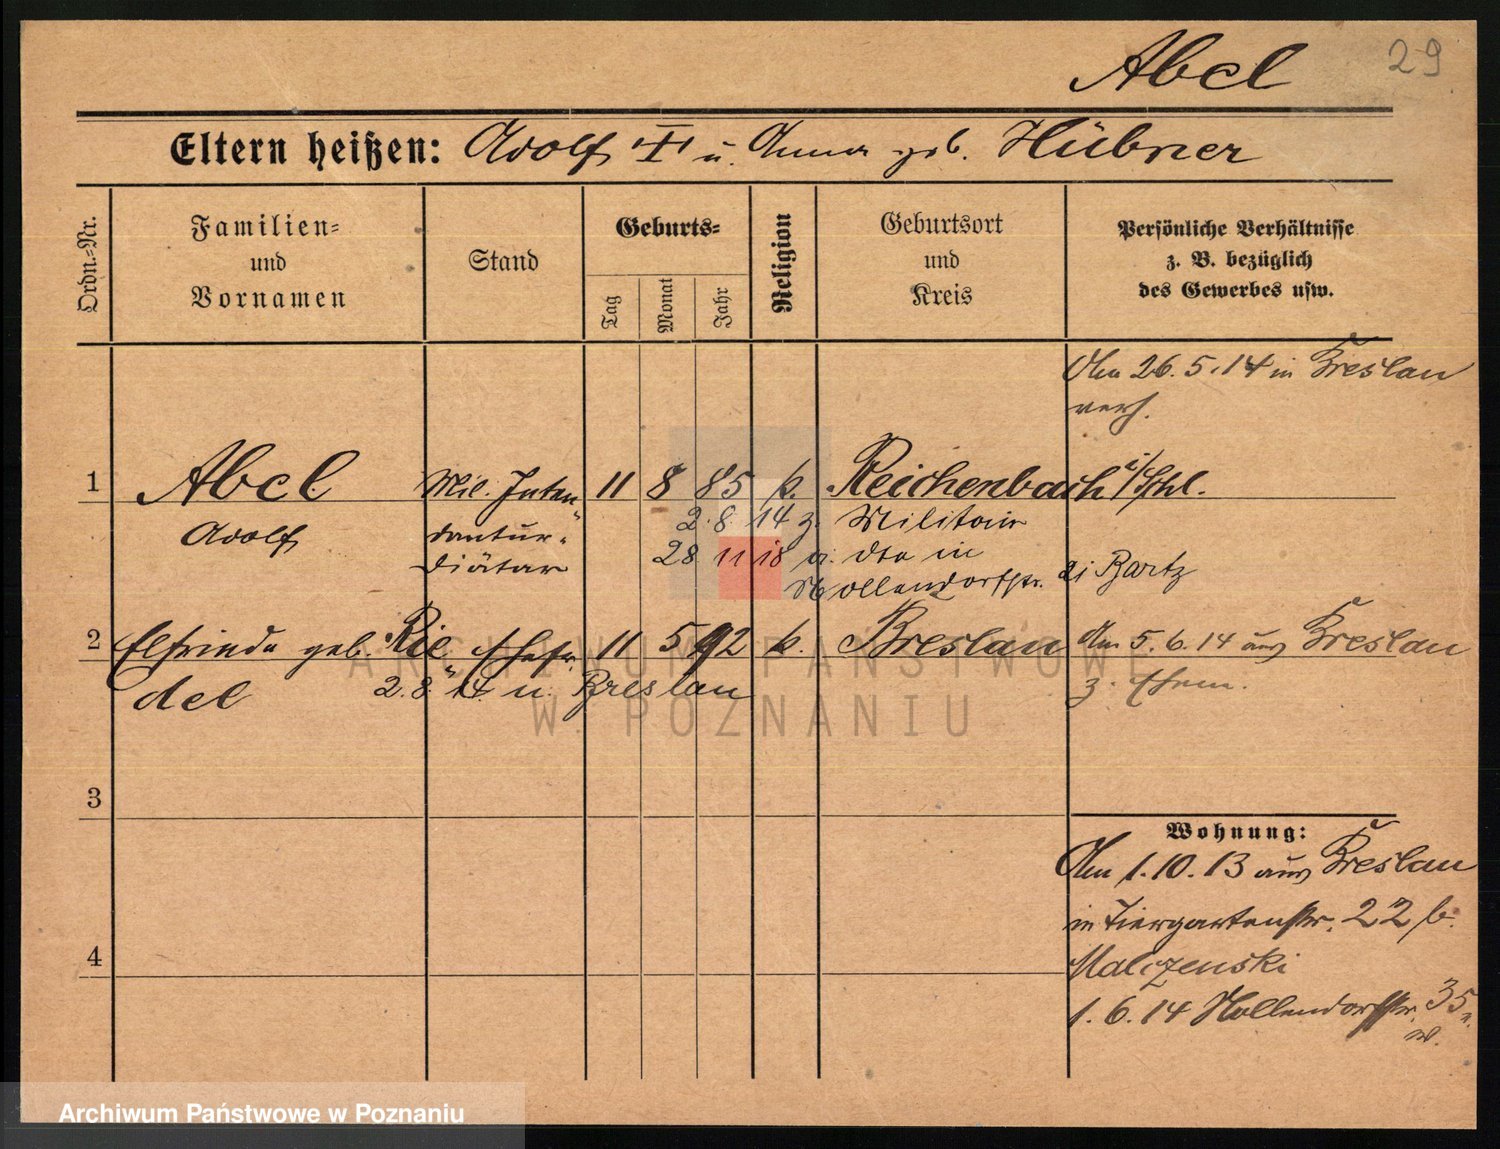 Abel 29
Eltern heißen: Adolf u. Anna geb. Hübner
Ordn.=Nr.
Familien=
und
Vornamen
Stand
Geburts=
Tag
Monat
Jahr
Religion
Geburtsort
und
Kreis
Persönliche Verhältnisse
z. B. bezüglich
des Gewerbes usw.
Am 26.5.14 in Breslau
verh.
1 Abel Mil. Inten= 11 8 85 k. Reichenbach i/Schl.
Adolf dantur= 2.8.14 z. Militair
Diätar 28 11 18 v. dto in
Hollendorfstr. bei Bartz
2 Elfriede geb. Rie= Ehefr. 11 5 92 k. Breslau Am 5.6.14 aus Breslau
del 2.8.14 n. Breslau z. Ehem.
3
Wohnung:
Am 1.10.13 aus Breslau
in Tiergartenstr. 22 b.
4 Malczenski
1.6.14 Hollendorfstr. 35
ARCHIWUM PAŃSTWOWE
W POZNANIU
Archiwum Państwowe w Poznaniu